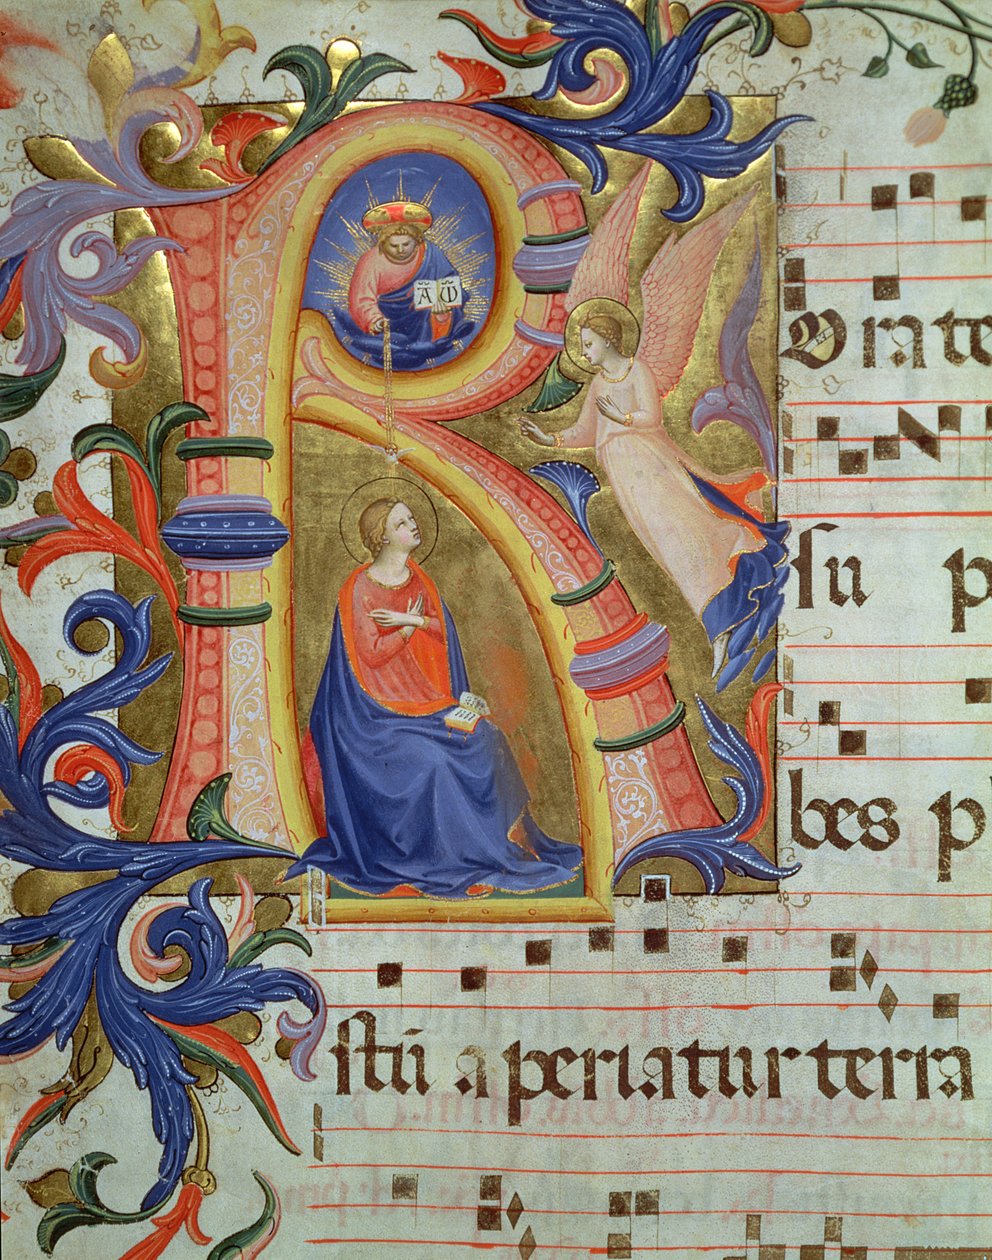 A Ω
R Orate
su p
bes p
stū aperiatur terra